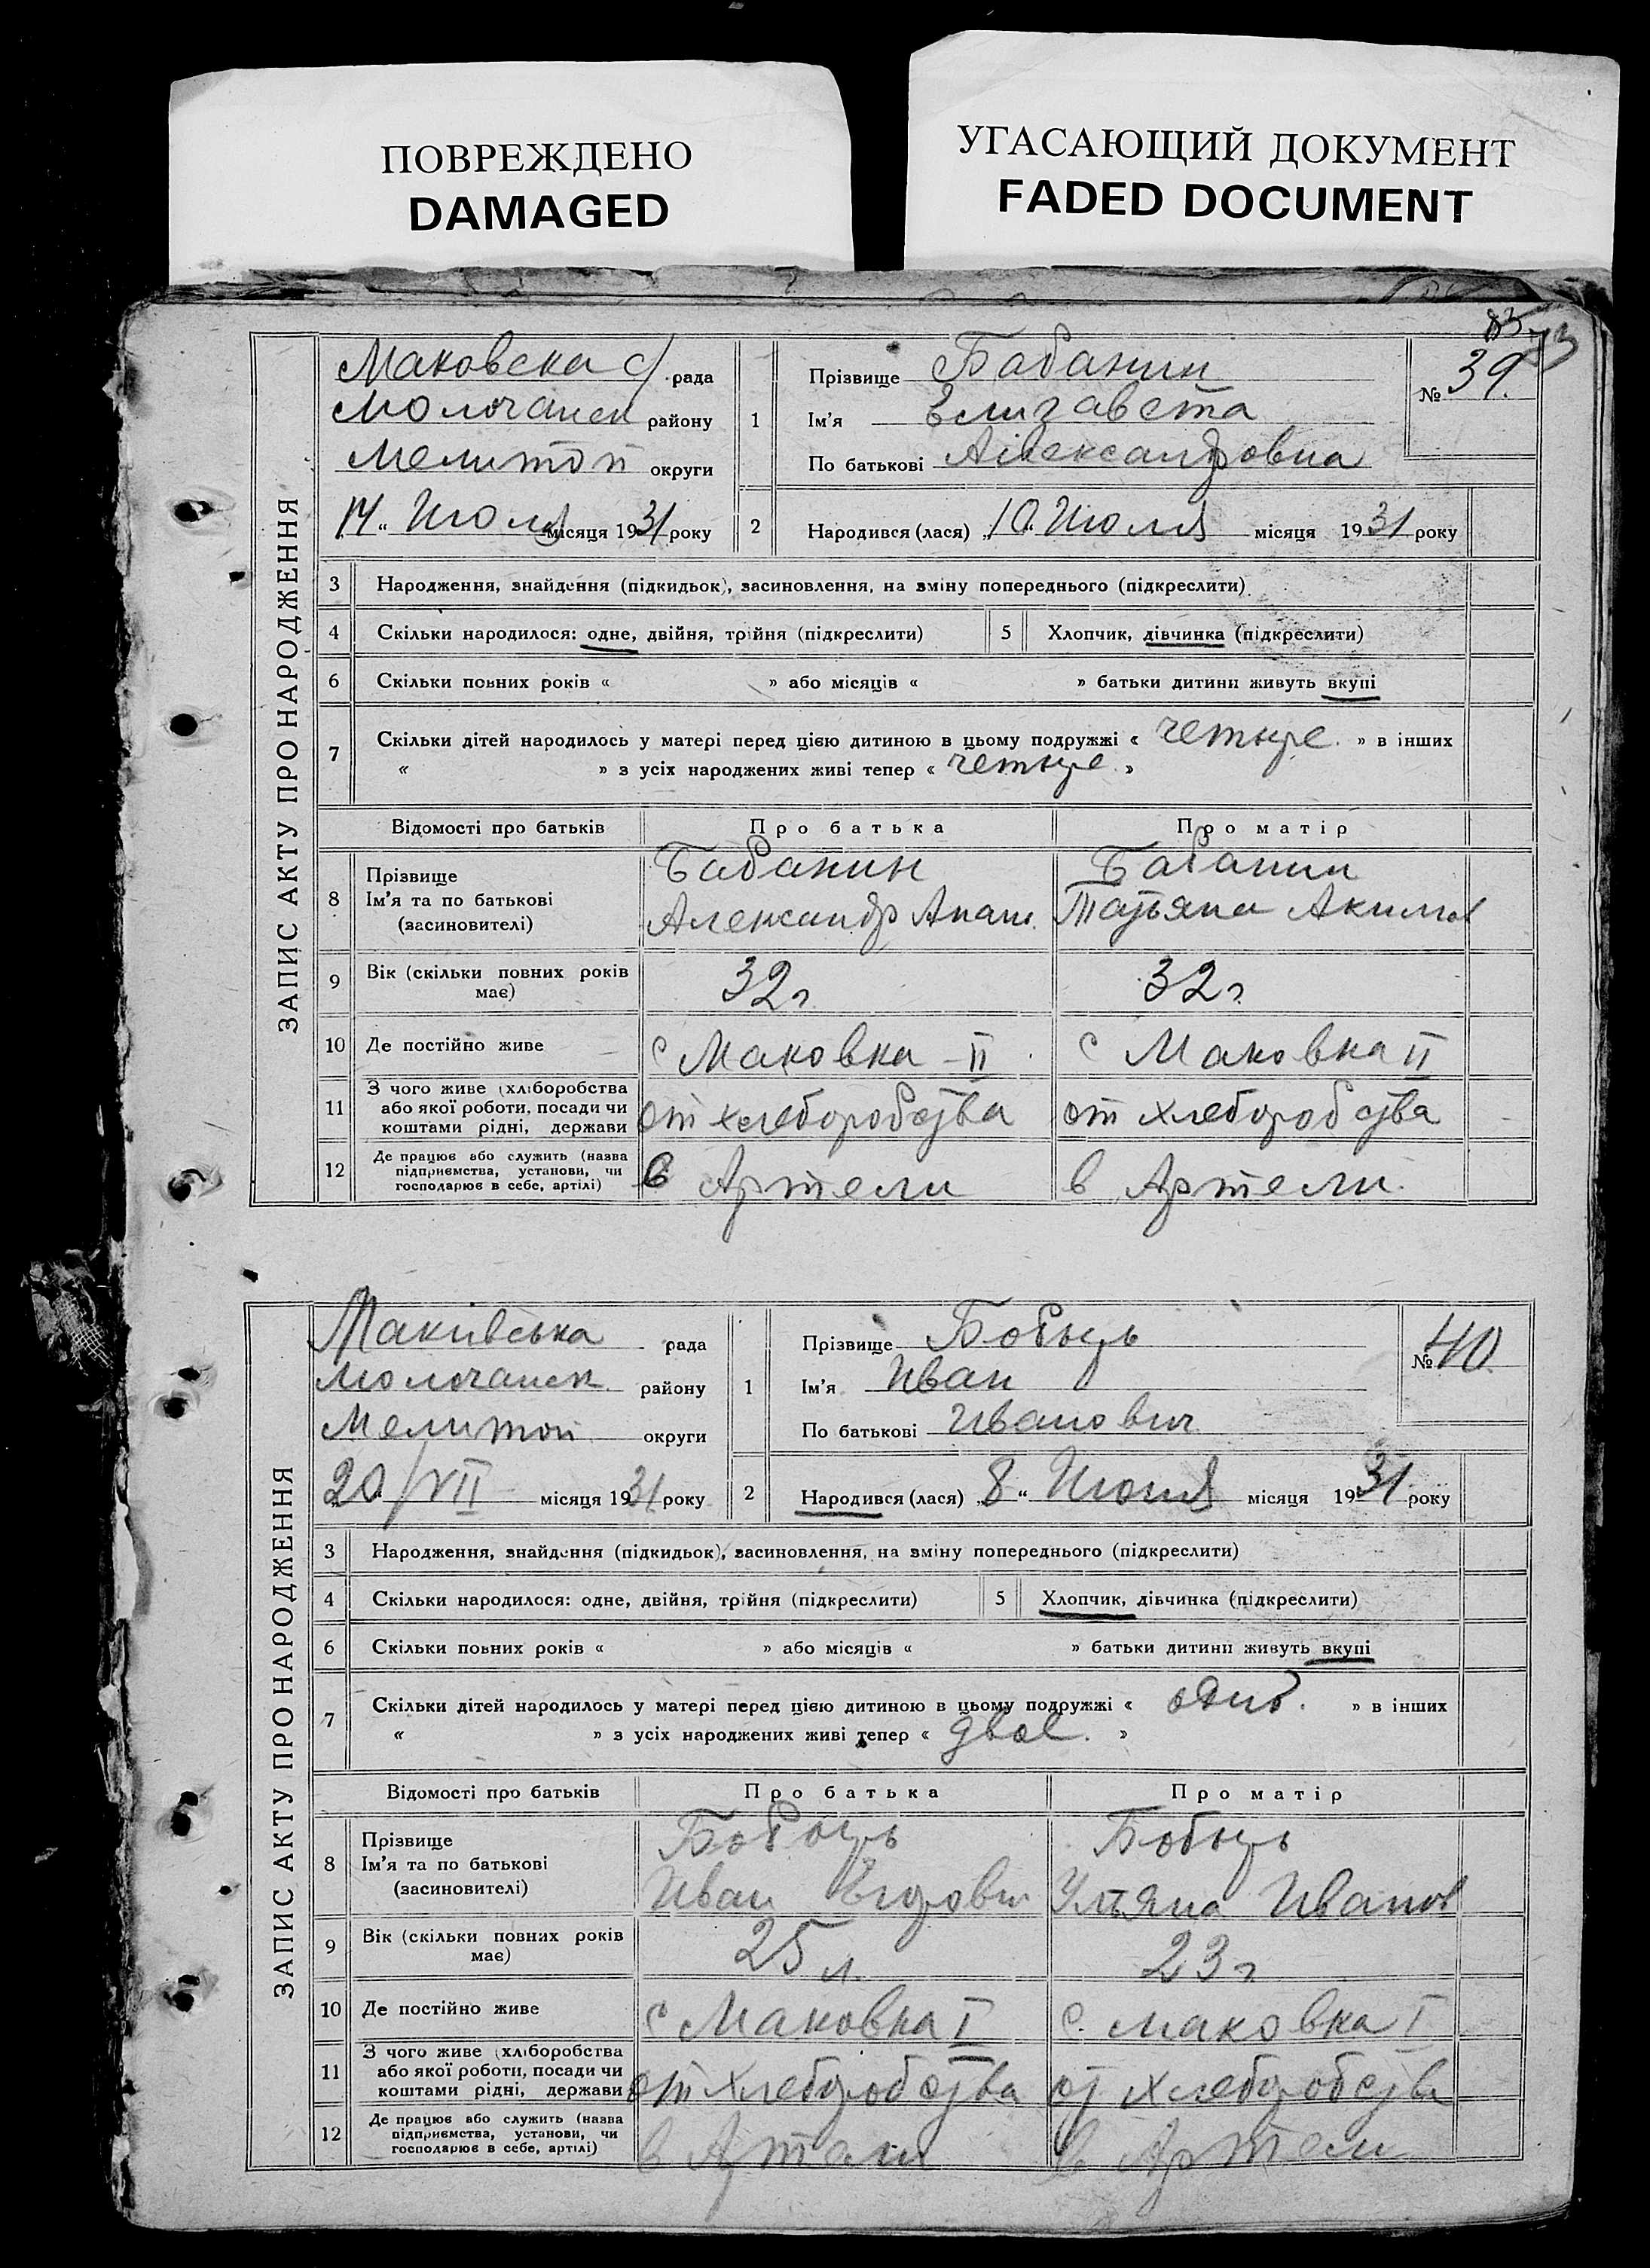 ПОВРЕЖДЕНО
DAMAGED
УГАСАЮЩИЙ ДОКУМЕНТ
FADED DOCUMENT
ЗАПИС АКТУ ПРО НАРОДЖЕННЯ
Маковска с/ рада
Молочанск району
Мелитоп округи
14 „ Июля місяця 1931 року
1
Прізвище Бабанин
Ім'я Елизавета
По батькові Александровна
№ 39.
2
Народився (лася) „10„ Июля місяця 1931 року
3 Народження, знайдення (підкидьок), засиновлення, на зміну попереднього (підкреслити).
4 Скільки народилося: одне, двійня, трійня (підкреслити) 5 Хлопчик, дівчинка (підкреслити)
6 Скільки повних років « » або місяців « » батьки дитини живуть вкупі
7 Скільки дітей народилось у матері перед цією дитиною в цьому подружжі « четыре. » в інших
« » з усіх народжених живі тепер « четыре. »
Відомості про батьків Про батька Про матір
8 Прізвище Бабанин Бабанин
Ім'я та по батькові Александр Татьяна Акимов
(засиновителі)
9 Вік (скільки повних років має) 32 г 32 г
10 Де постійно живе с Маковка - II с Маковка II
11 З чого живе (хліборобства або якої роботи, посади чи коштами рідні, держави от хлеборобства от хлеборобства
12 Де працює або служить (назва підприємства, установи, чи господарює в себе, артілі) в Артели в Артели.
ЗАПИС АКТУ ПРО НАРОДЖЕННЯ
Маківська рада
Молочанск району
Мелитоп округи
20/VII місяця 1931 року
1
Прізвище Бобырь
Ім'я Иван
По батькові Иванович
№ 40.
2
Народився (лася) „8„ місяця 1931 року
3 Народження, знайдення (підкидьок), засиновлення, на зміну попереднього (підкреслити)
4 Скільки народилося: одне, двійня, трійня (підкреслити) 5 Хлопчик, дівчинка (підкреслити)
6 Скільки повних років « » або місяців « » батьки дитини живуть вкупі
7 Скільки дітей народилось у матері перед цією дитиною в цьому подружжі « » в інших
« » з усіх народжених живі тепер « двое. »
Відомості про батьків Про батька Про матір
8 Прізвище Бобырь Бобырь
Ім'я та по батькові Иван Егорович Уляна Иванов
(засиновителі)
9 Вік (скільки повних років має) 25 л. 23 г
10 Де постійно живе с Маковка I с. Маковка I
11 З чого живе (хліборобства або якої роботи, посади чи коштами рідні, держави от хлеборобства от хлеборобства
12 Де працює або служить (назва підприємства, установи, чи господарює в себе, артілі) в Артели в Артели